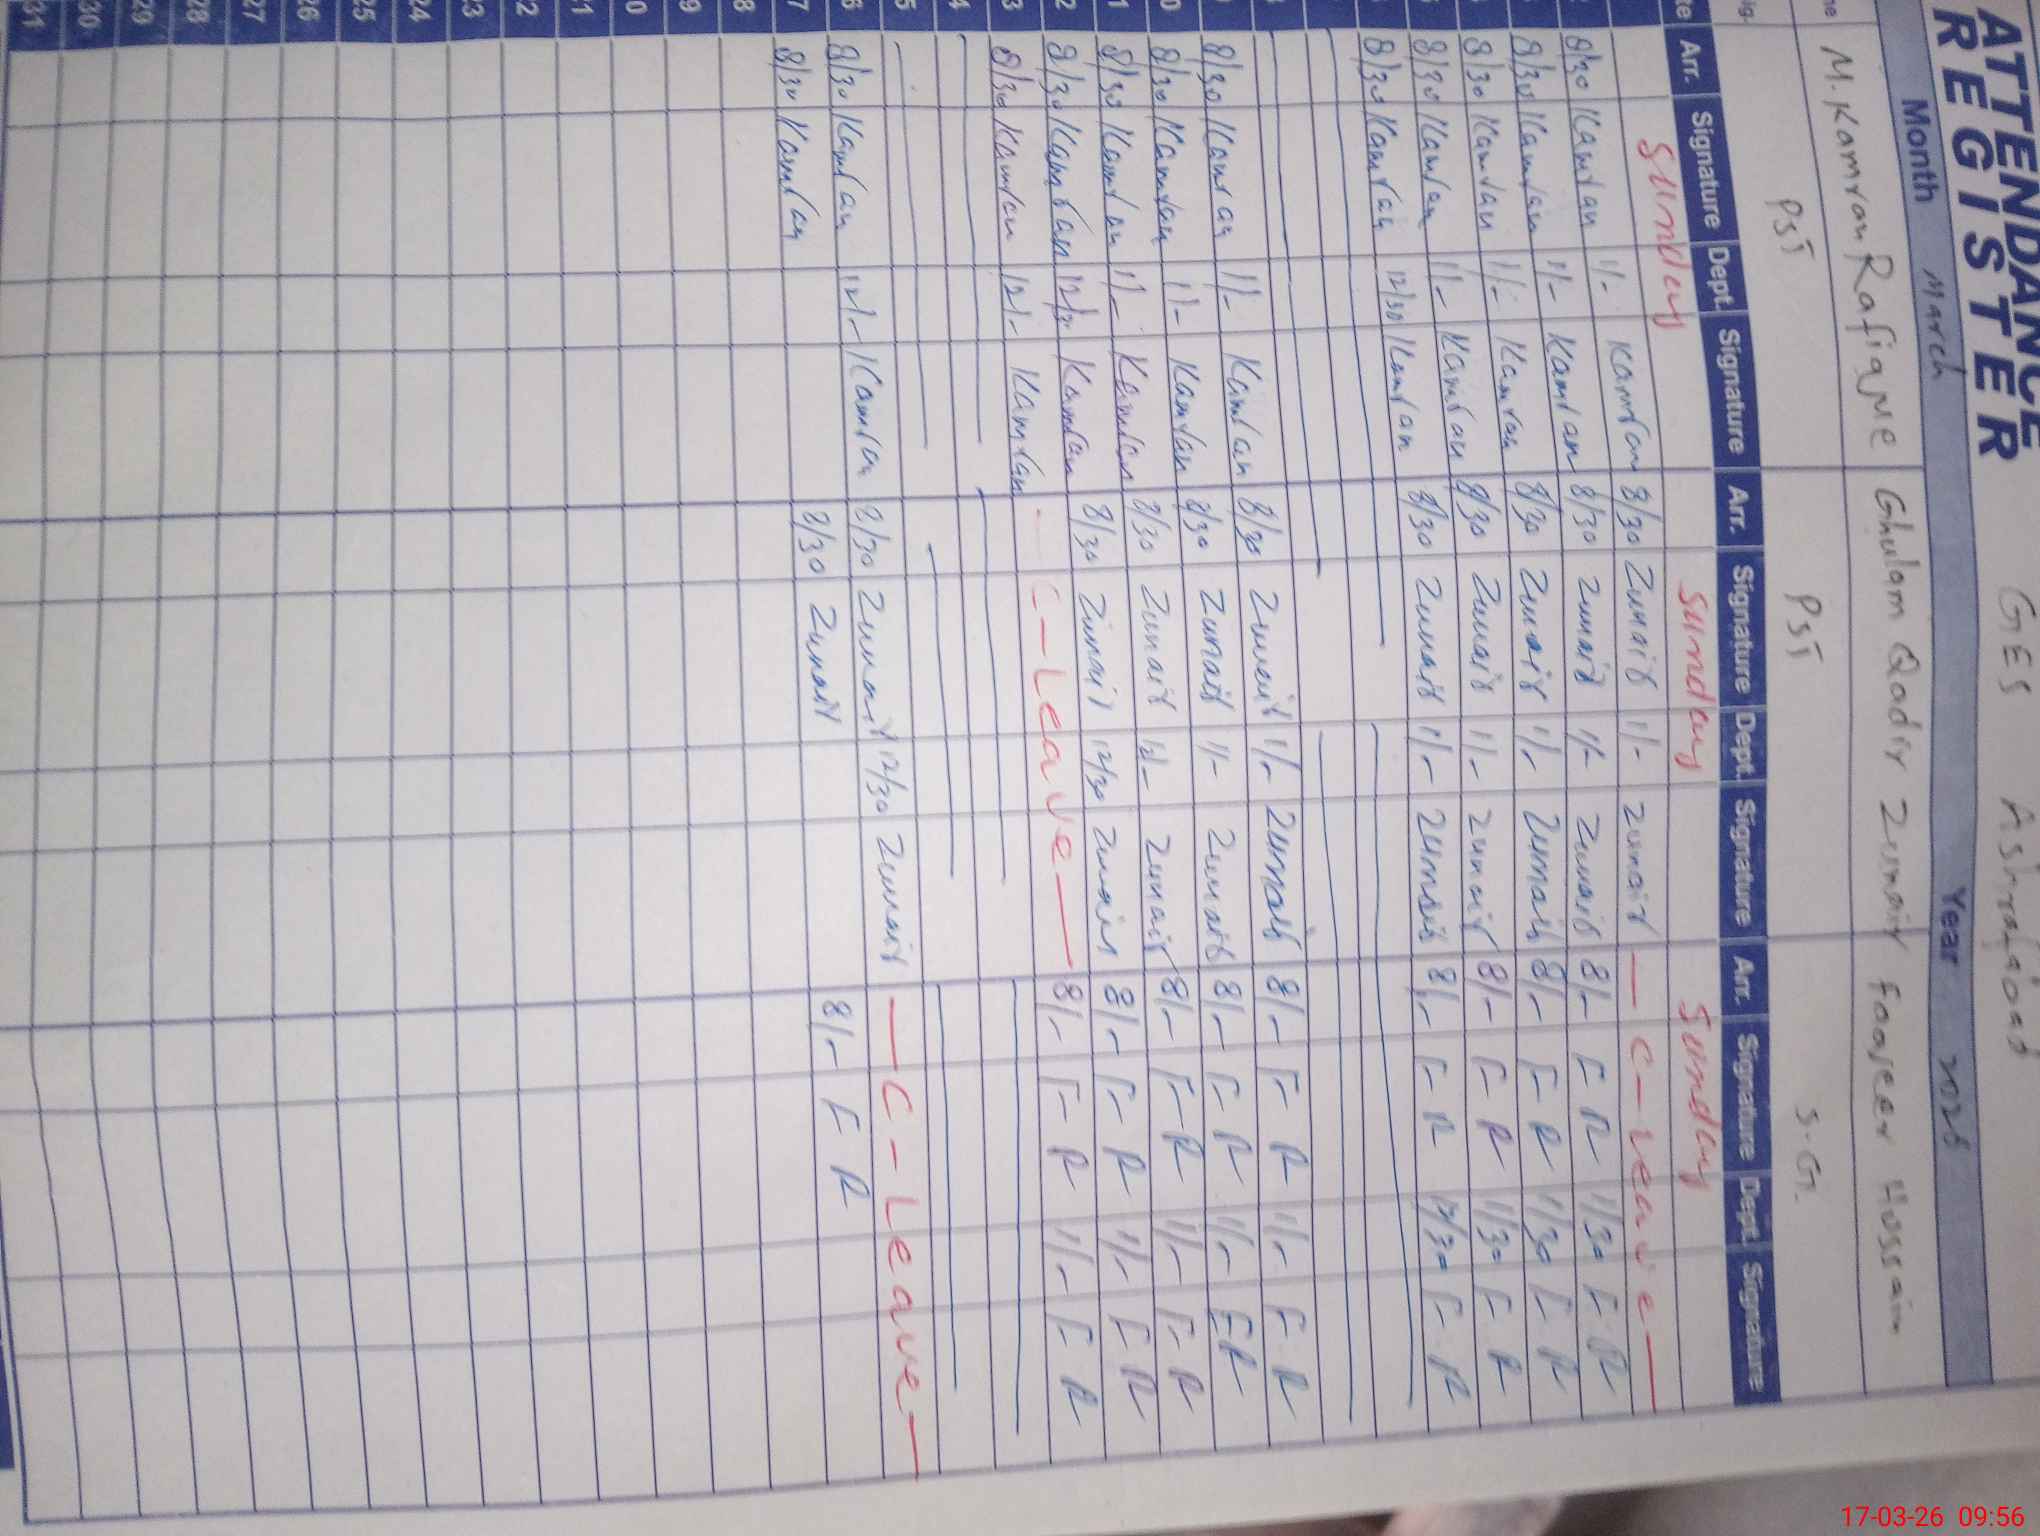 GES Ashrafabad
ATTENDANCE
REGISTER
Month March Year 2026
M. Kamran Rafique Ghulam Qadir Zunair Faqeer Hussain
PST PST S.G.
Arr. Signature Dept. Signature Arr. Signature Dept. Signature Arr. Signature Dept. Signature
Sunday Sunday Sunday
8/30 Kamran 1/- Kamran 8/30 Zunair 1/- Zunair — C-Leave —
8/30 Kamran 1/- Kamran 8/30 Zunair 1/- Zunair 8/- F R 1/30 F R
8/30 Kamran 1/- Kamran 8/30 Zunair 1/- Zunair 8/- F R 1/30 F R
8/30 Kamran 1/- Kamran 8/30 Zunair 1/- Zunair 8/- F R 1/30 F R
8/30 Kamran 12/30 Kamran 8/30 Zunair 1/- Zunair 8/- F R 12/30 F R
8/30 Kamran 1/- Kamran 8/30 Zunair 1/- Zunair 8/- F R 1/- F R
8/30 Kamran 1/- Kamran 8/30 Zunair 1/- Zunair 8/- F R 1/- F R
8/30 Kamran 1/- Kamran 8/30 Zunair 12/- Zunair 8/- F R 1/- F R
8/30 Kamran 12/30 Kamran 8/30 Zunair 12/30 Zunair 8/- F R 1/- F R
3 8/30 Kamran 12/- Kamran - C-Leave — 8/- F R 1/- F R
4
5
6 8/30 Kamran 12/- Kamran 8/30 Zunair 12/30 Zunair — C-Leave —
7 8/30 Kamran 8/30 Zunair 8/- F R
8
9
0
1
2
23
24
25
26
27
28
29
30
31
17-03-26 09:56